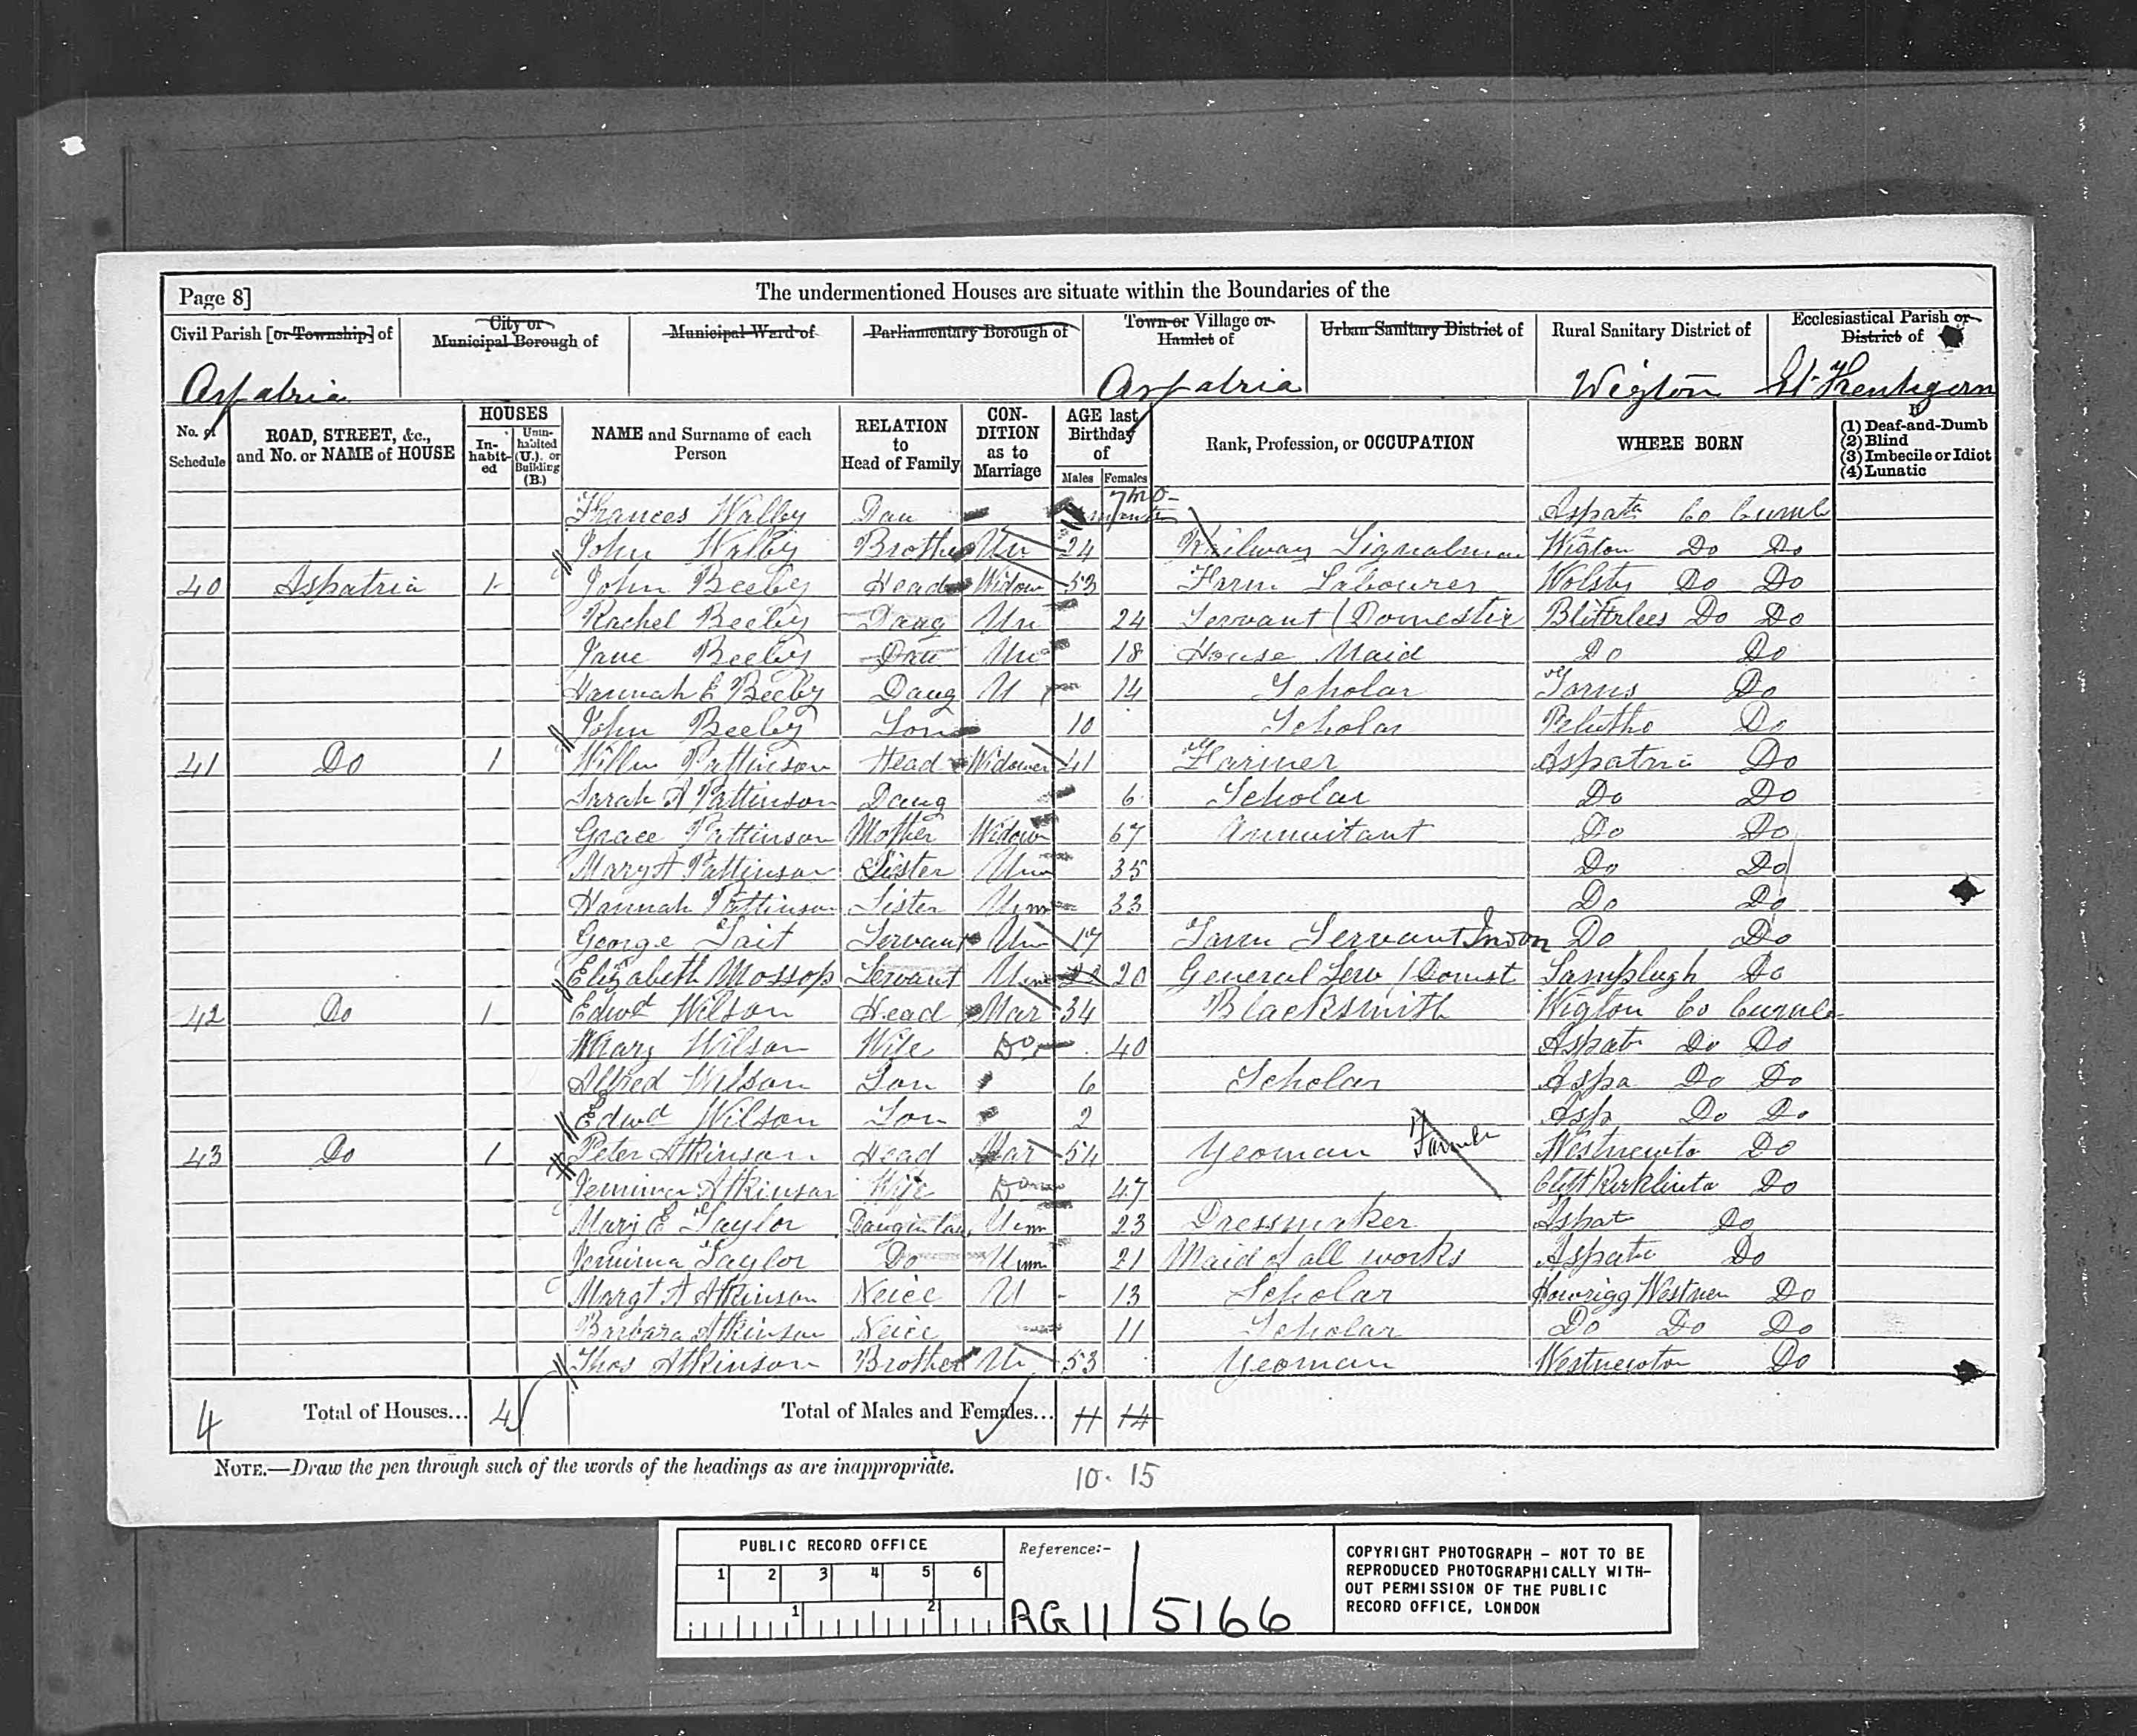 Page 8]
The undermentioned Houses are situate within the Boundaries of the
Civil Parish [or Township] of
City or Municipal Borough of
Municipal Ward of
Parliamentary Borough of
Town or Village or Hamlet of
Urban Sanitary District of
Rural Sanitary District of
Ecclesiastical Parish or District of
Aspatria Aspatria Wigton St Kentigern
No. of Schedule
ROAD, STREET, &c., and No. or NAME of HOUSE
HOUSES
In-habit-ed
Unin-habited (U.), or Building (B.)
NAME and Surname of each Person
RELATION to Head of Family
CON-DITION as to Marriage
AGE last Birthday of
Males Females
Rank, Profession, or OCCUPATION
WHERE BORN
If
(1) Deaf-and-Dumb
(2) Blind
(3) Imbecile or Idiot
(4) Lunatic
Frances Walby Dau 7 mo Aspat Co Cumb
John Walby Brother Un 24 Railway Signalman Wigton Do Do
40 Aspatria 1 John Beeby Head Widow 53 Farm Labourer Wolsty Do Do
Rachel Beeby Daug Un 24 Servant (Domestic Blitterlees Do Do
Jane Beeby Dau Un 18 House Maid Do Do
Hannah E Beeby Daug U 14 Scholar Tarns Do
John Beeby Son 10 Scholar Pelutho Do
41 Do 1 Willm Pattinson Head Widower 41 Farmer Aspatria Do
Sarah A Pattinson Daug 6 Scholar Do Do
Grace Pattinson Mother Widow 67 Annuitant Do Do
Mary A Pattinson Sister Unm 35 Do Do
Hannah Pattinson Sister Unm 33 Do Do
George Tait Servant Un 17 Farm Servant Indoor Do Do
Elizabeth Mossop Servant Unm 20 General Serv (Domst Lamplugh Do
42 Do 1 Edwd Wilson Head Mar 34 Blacksmith Wigton Co Cumb
Mary Wilson Wife Do 40 Aspat Do Do
Alfred Wilson Son 6 Scholar Aspa Do Do
Edwd Wilson Son 2 Asp Do Do
43 Do 1 Peter Atkinson Head Mar 54 Yeoman Farmer Westnewto Do
Jemima Atkinson Wife Do 47 Kirklinto Do
Mary E Taylor Daug in law Unm 23 Dressmaker Aspat Do
Jemima Taylor Do Unm 21 Maid of all works Aspat Do
Margt A Atkinson Neice U 13 Scholar Howrigg Westnew Do
Barbara Atkinson Neice 11 Scholar Do Do Do
Thos Atkinson Brother U 53 Yeoman Westnewton Do
4 Total of Houses... 4 Total of Males and Females... 11 14
NOTE.—Draw the pen through such of the words of the headings as are inappropriate.
10. 15
PUBLIC RECORD OFFICE
1 2 3 4 5 6
1 2
Reference:-
RG 11 / 5166
COPYRIGHT PHOTOGRAPH - NOT TO BE
REPRODUCED PHOTOGRAPHICALLY WITH-
OUT PERMISSION OF THE PUBLIC
RECORD OFFICE, LONDON